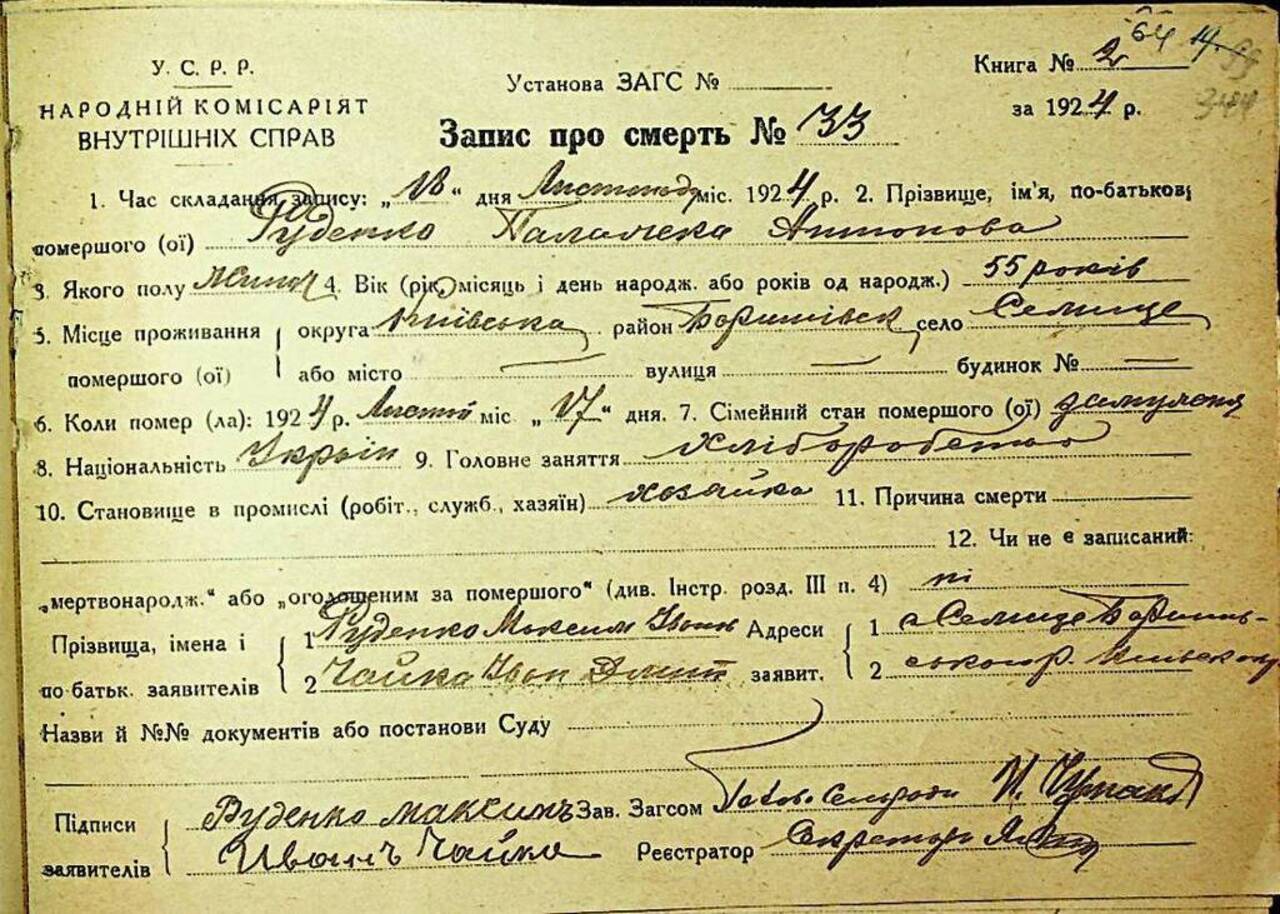 64 14
Книга № 2
344
У. С. Р. Р.
НАРОДНІЙ КОМІСАРІЯТ
ВНУТРІШНІХ СПРАВ
Установа ЗАГС №
за 1924 р.
Запис про смерть № 33
1. Час складання запису: „18“ дня Листопаду міс. 1924 р. 2. Прізвище, ім'я, по-батькові
помершого (ої) Руденко Палажека Антонова
3. Якого полу Жіноч 4. Вік (рік, місяць і день народж. або років од народж.) 55 років
5. Місце проживання округа Київська район Баришівськ село Селище
помершого (ої) або місто — вулиця — будинок № —
6. Коли помер (ла): 1924 р. Листоп міс. „17“ дня. 7. Сімейний стан помершого (ої) замужня
8. Національність Україн 9. Головне заняття хліборобство
10. Становище в промислі (робіт., служб., хазяїн) хозяйка 11. Причина смерти
12. Чи не є записаний:
„мертвонародж.“ або „оголошеним за помершого“ (див. Інстр. розд. III п. 4) ні
Прізвища, імена і 1 Руденко Максим Іван Адреси 1 с Селище Баришів-
по батьк. заявителів 2 Чайка Іван Дмит заявит. 2 ського р. Київськ окр
Назви й №№ документів або постанови Суду
Підписи Руденко Максимъ Зав. Загсом Голов. Сельради И. Чумак
заявителів Иванъ Чайка Реєстратор Секретарь